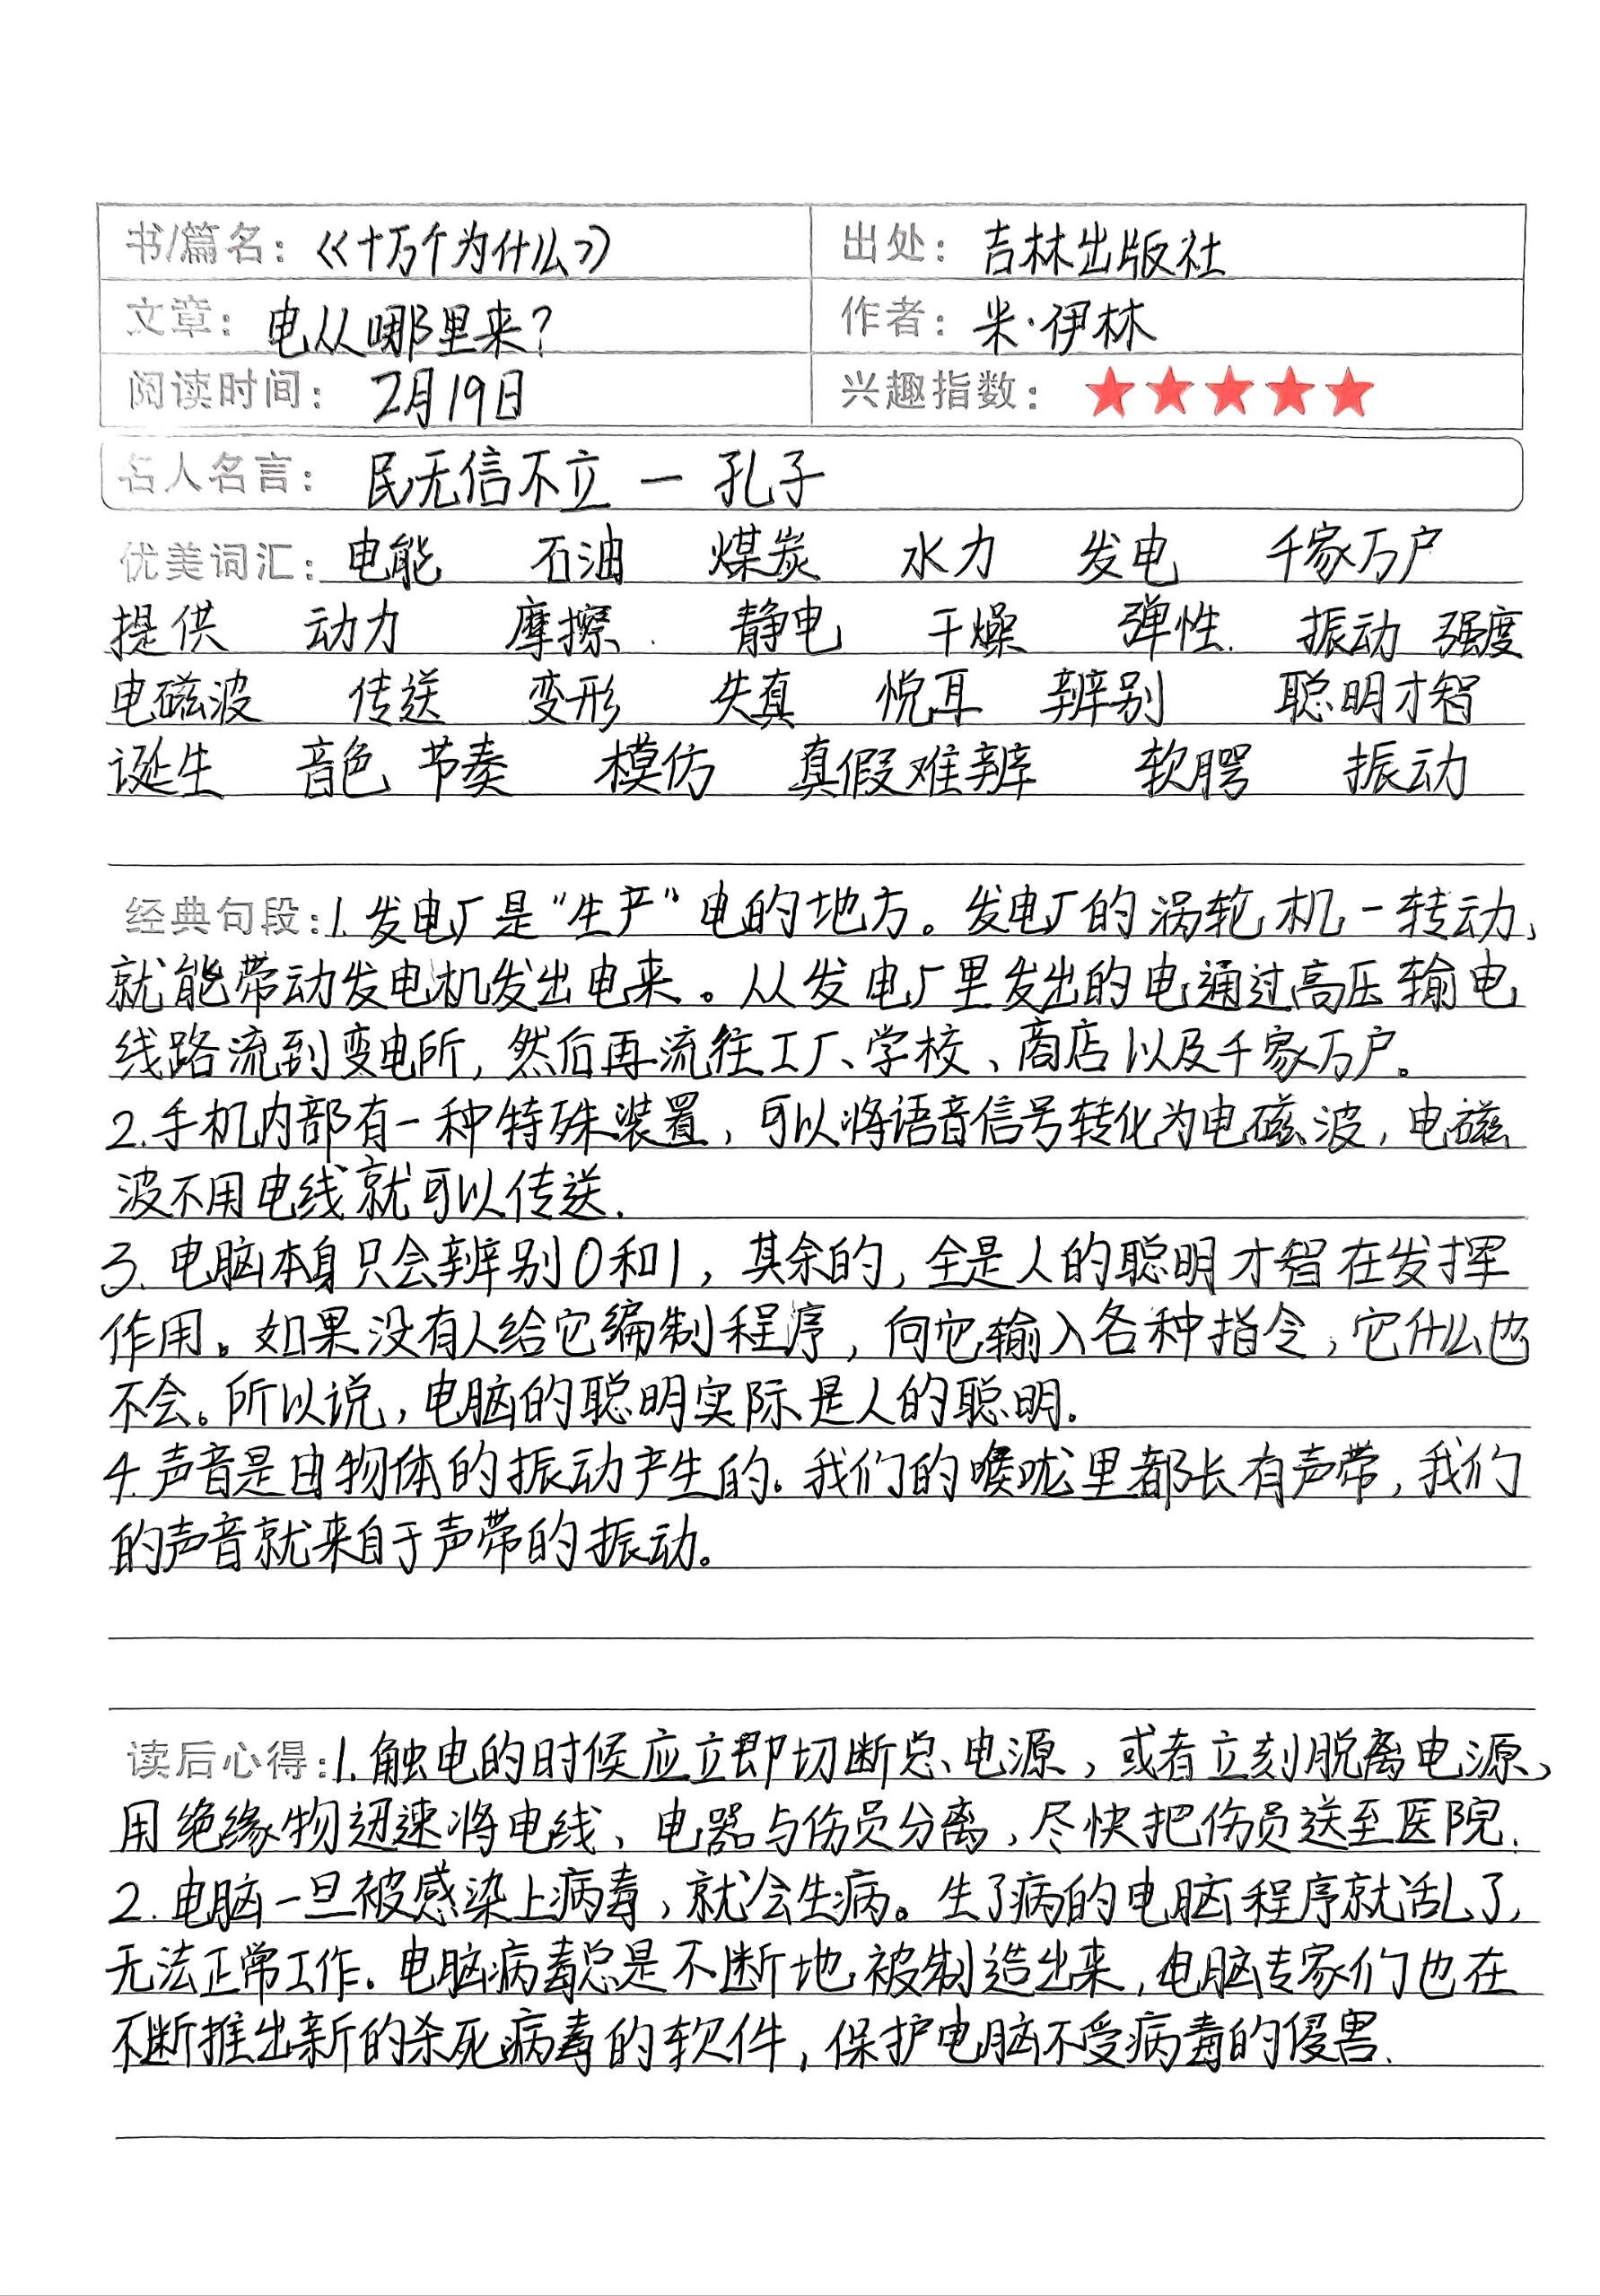 书/篇名：《十万个为什么》 出处：吉林出版社
文章：电从哪里来？ 作者：米·伊林
阅读时间：2月19日 兴趣指数：★★★★★
名人名言：民无信不立 — 孔子
优美词汇：电能 石油 煤炭 水力 发电 千家万户
提供 动力 摩擦. 静电 干燥 弹性. 振动 强度
电磁波 传送 变形 失真 悦耳 辨别 聪明才智
诞生 音色 节奏 模仿 真假难辨 软腭 振动
经典句段：1.发电厂是“生产”电的地方。发电厂的涡轮机一转动，
就能带动发电机发出电来。从发电厂里发出的电通过高压输电
线路流到变电所，然后再流往工厂、学校、商店以及千家万户。
2.手机内部有一种特殊装置，可以将语音信号转化为电磁波，电磁
波不用电线就可以传送.
3.电脑本身只会辨别0和1，其余的，全是人的聪明才智在发挥
作用。如果没有人给它编制程序，向它输入各种指令，它什么也
不会。所以说，电脑的聪明实际是人的聪明.
4.声音是由物体的振动产生的。我们的喉咙里都长有声带，我们
的声音就来自于声带的振动。
读后心得：1.触电的时候应立即切断总电源，或者立刻脱离电源，
用绝缘物迅速将电线、电器与伤员分离，尽快把伤员送至医院.
2.电脑一旦被感染上病毒，就会生病。生了病的电脑程序就活乱了，
无法正常工作.电脑病毒总是不断地被制造出来，电脑专家们也在
不断推出新的杀死病毒的软件，保护电脑不受病毒的侵害.